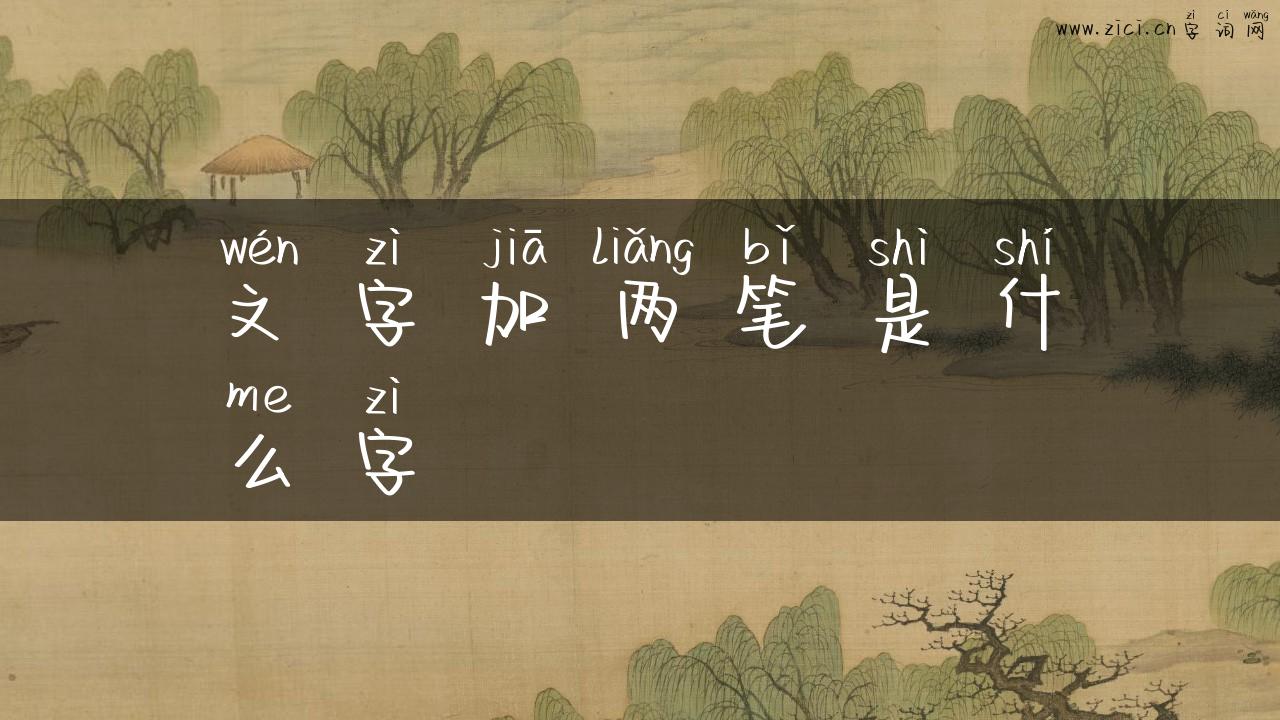 zì cí wǎng
www.zici.cn 字 词 网
wén zì jiā liǎng bǐ shì shí
文 字 加 两 笔 是 什
me zì
么 字